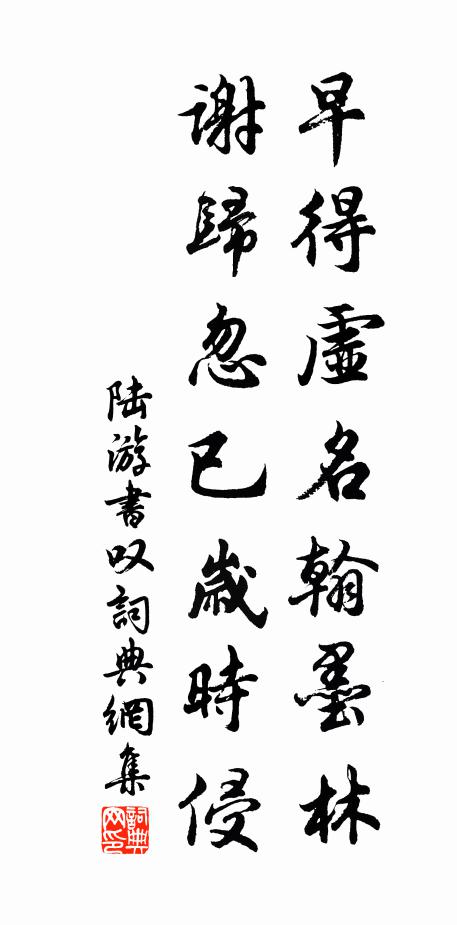 早得虛名翰墨林
謝歸忽已歲時侵
陸游書叹詞典網集
詞典
网印